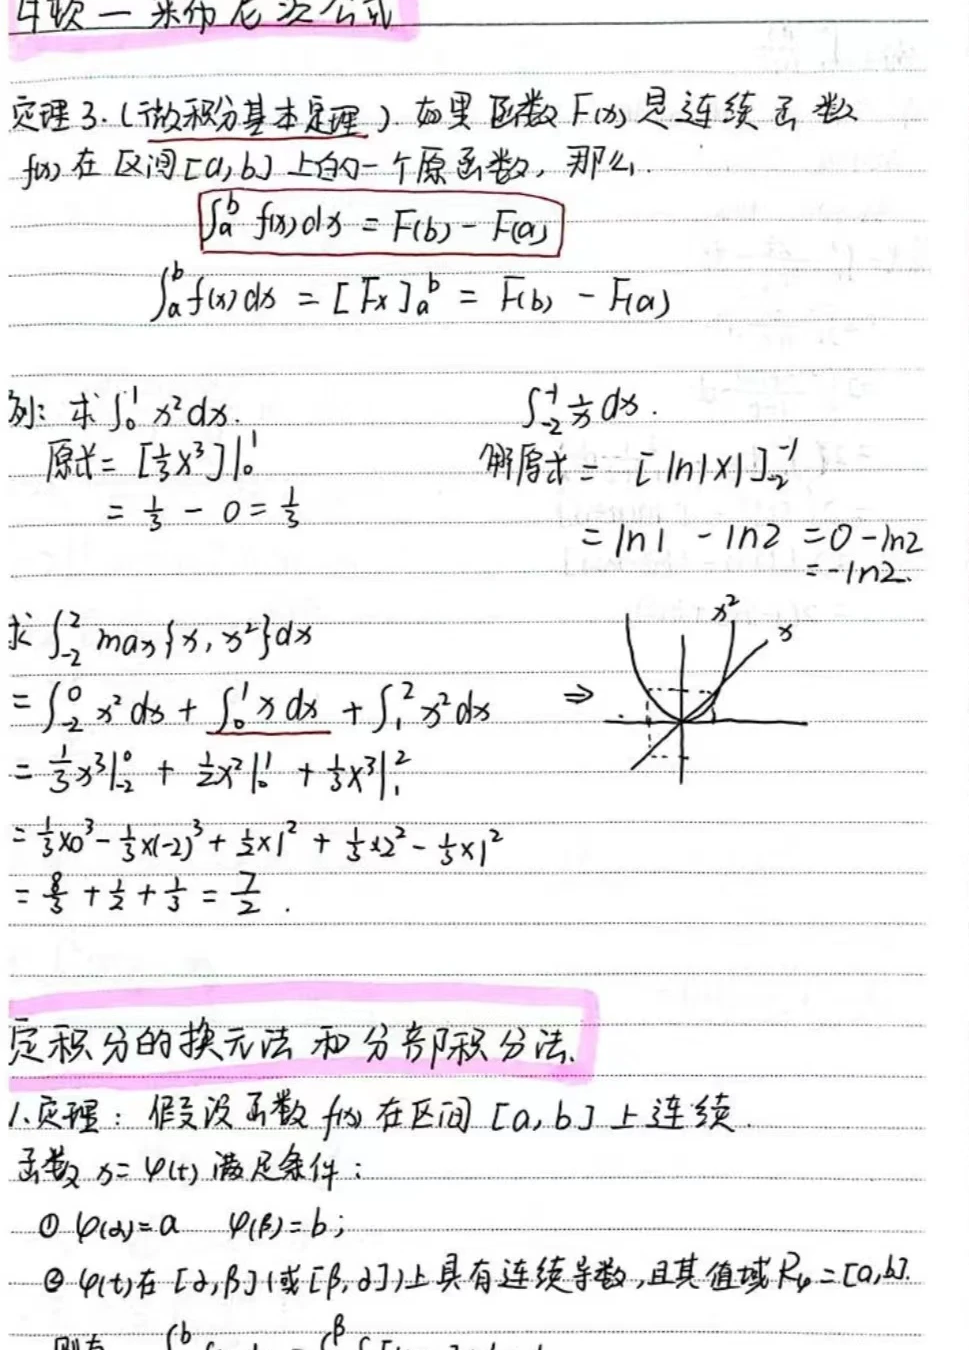 牛顿一莱布尼茨公式
定理3.(微积分基本定理).如果函数F(x)是连续函数
f(x)在区间[a,b]上的一个原函数,那么.
∫ₐᵇ f(x)dx = F(b) - F(a)
∫ₐᵇ f(x)dx = [Fx]ₐᵇ = F(b) - F(a)
例: 求∫₀¹ x²dx.
原式 = [⅓x³]|₀¹
= ⅓ - 0 = ⅓
∫₋₂⁻¹ 1/x dx.
解原式 = [ln|x|]₋₂⁻¹
= ln1 - ln2 = 0 - ln2
= -ln2.
求∫₋₂² max{x, x²}dx
= ∫₋₂⁰ x²dx + ∫₀¹ x dx + ∫₁² x²dx ⇒
= ⅓x³|₋₂⁰ + ½x²|₀¹ + ⅓x³|₁²
= ⅓×0³ - ⅓×(-2)³ + ½×1² + ⅓×2² - ⅓×1²
= 8/3 + ½ + ⅓ = 7/2.
x²
x
定积分的换元法和分部积分法.
1.定理: 假设函数f(x)在区间[a,b]上连续.
函数x=φ(t)满足条件:
① φ(α)=a φ(β)=b;
② φ(t)在[α,β](或[β,α])上具有连续导数,且其值域Rφ=[a,b].